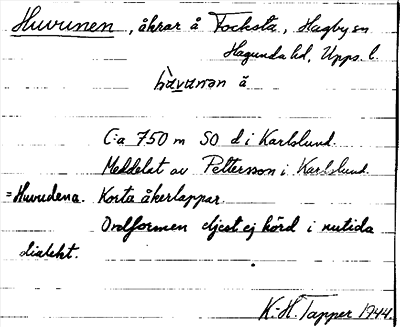 Huvunen, åkrar å Focksta, Hagby sn
Hagunda hd, Upps. l.
hùvunən ä
C:a 750 m SO d i Karlslund.
Meddelat av Pettersson i Karlslund.
=Huvudena. Korta åkerlappar.
Ordformen eljest ej hörd i nutida
dialekt.
K.-H. Tapper 1944.